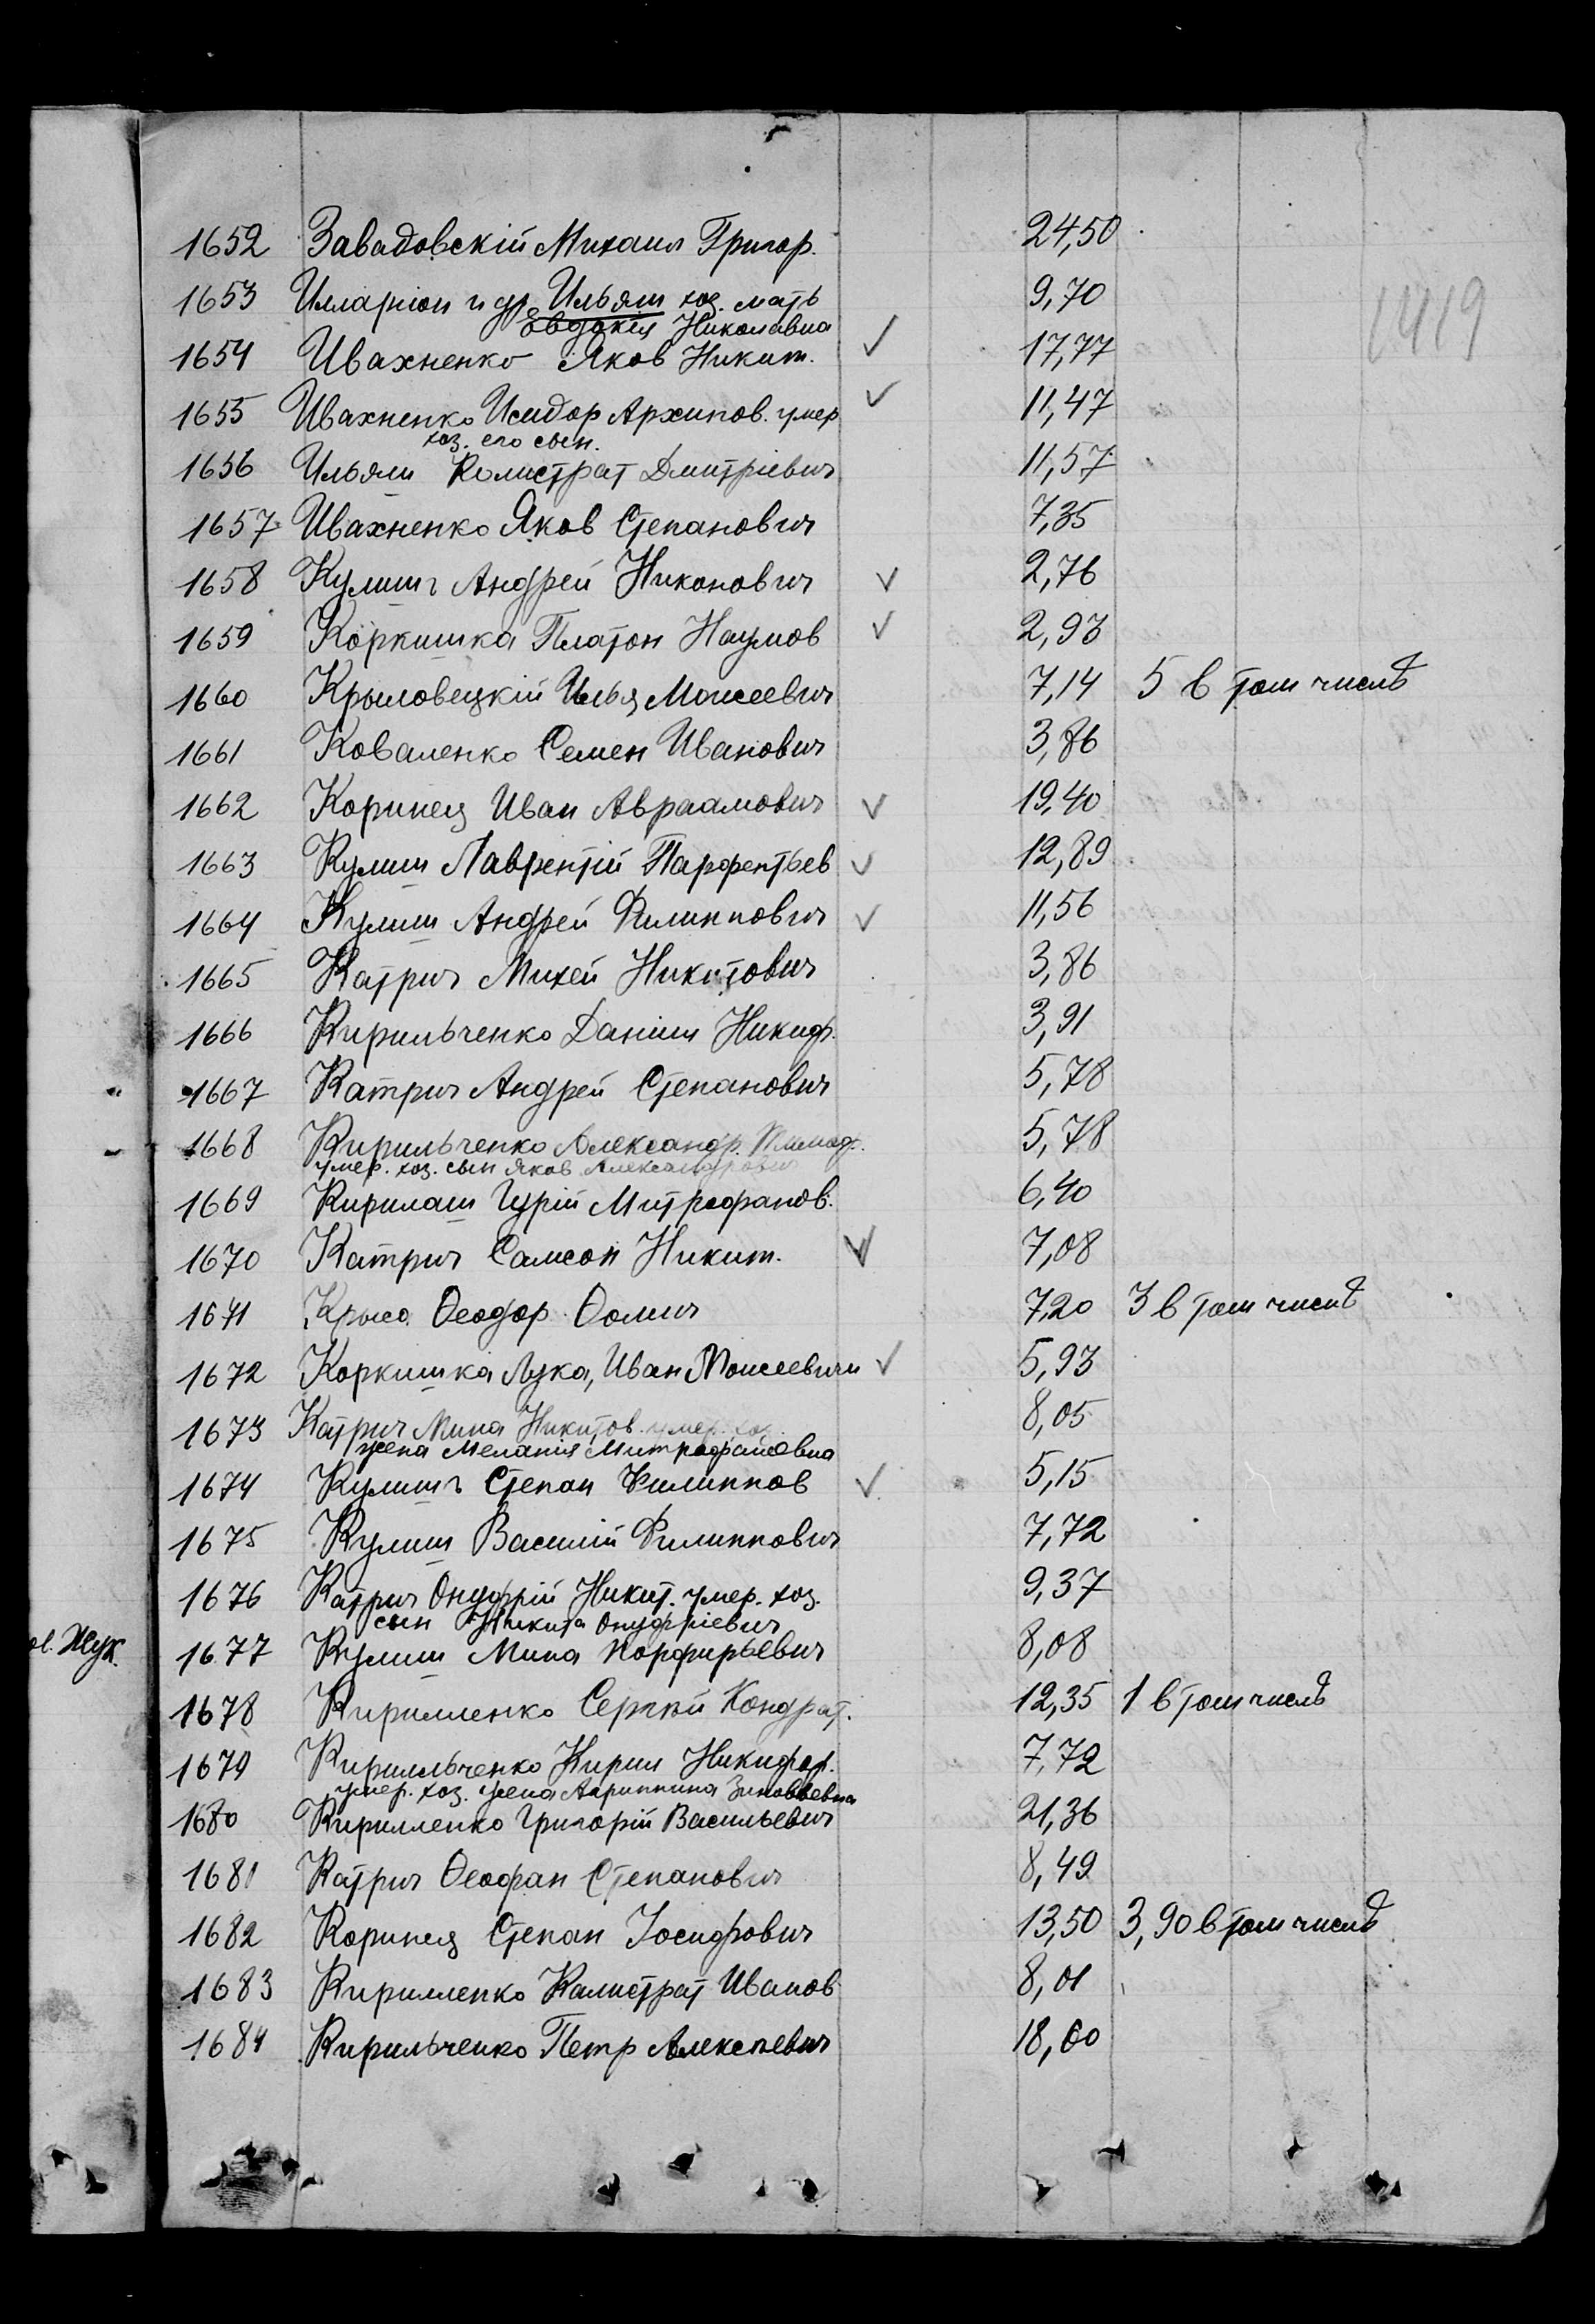 1652 Завадовскій Михаил Григор. 24,50
1419
1653 Илларіон и др. Ильяш хоз. мать 9,70
Евдокія Николавна
1654 Ивахненко Яков Никит. ✓ 17,77
1655 Ивахненко Исидор Архипов. умер ✓ 11,47
хоз. его сын.
1656 Ильяш Колистрат Дмитріевич 11,57
1657 Ивахненко Яков Степанович 7,35
1658 Кулиш Андрей Никонович ✓ 2,76
1659 Коркишка Платон Наумов ✓ 2,93
1660 Крыловецкій Илья Моисеевич 7,14 5 в том числѣ
1661 Коваленко Семен Иванович 3,86
1662 Коринец Иван Авраамович ✓ 19,40
1663 Кулиш Лаврентій Парфентьев ✓ 12,89
1664 Кулиш Андрей Филиппович ✓ 11,56
1665 Катрич Михей Никитович 3,86
1666 Кирильченко Даніил Никиф. 3,91
1667 Катрич Андрей Степанович 5,78
1668 Кирильченко Александр. 5,78
умер. хоз. сын Яков Александрович
1669 Кирилаш Гурій Митрофанов. 6,40
1670 Катрич Самсон Никит. ✓ 7,08
1671 Ѳеодор Ѳомич 7,20 3 в том числѣ
1672 Коркишка Лука, Иван Моисеевичи ✓ 5,93
1673 Катрич Мина Никитов. умер. хоз. 8,05
жена Меланія Митрофановна
1674 Кулиш Степан Филиппов ✓ 5,15
1675 Кулиш Василій Филиппович 7,72
1676 Катрич Онуфрій Никит. умер. хоз. 9,37
сын Никита Онуфріевич
ол. Жук.
1677 Кулиш Мина Порфирьевич 8,08
1678 Кирилленко Сергѣй Кондрат. 12,35 1 в том числѣ
1679 Кирилльченко Кирил Никифор. 7,72
умер. хоз. жена Агриппина Зиновьевна
1680 Кирилленко Григорій Васильевич 21,36
1681 Катрич Ѳеофан Степанович 8,49
1682 Коринец Степан Іосифович 13,50 3,90 в том числѣ
1683 Кирилленко Калистрат Иванов 8,01
1684 Кирильченко Петр Алексѣевич 18,60